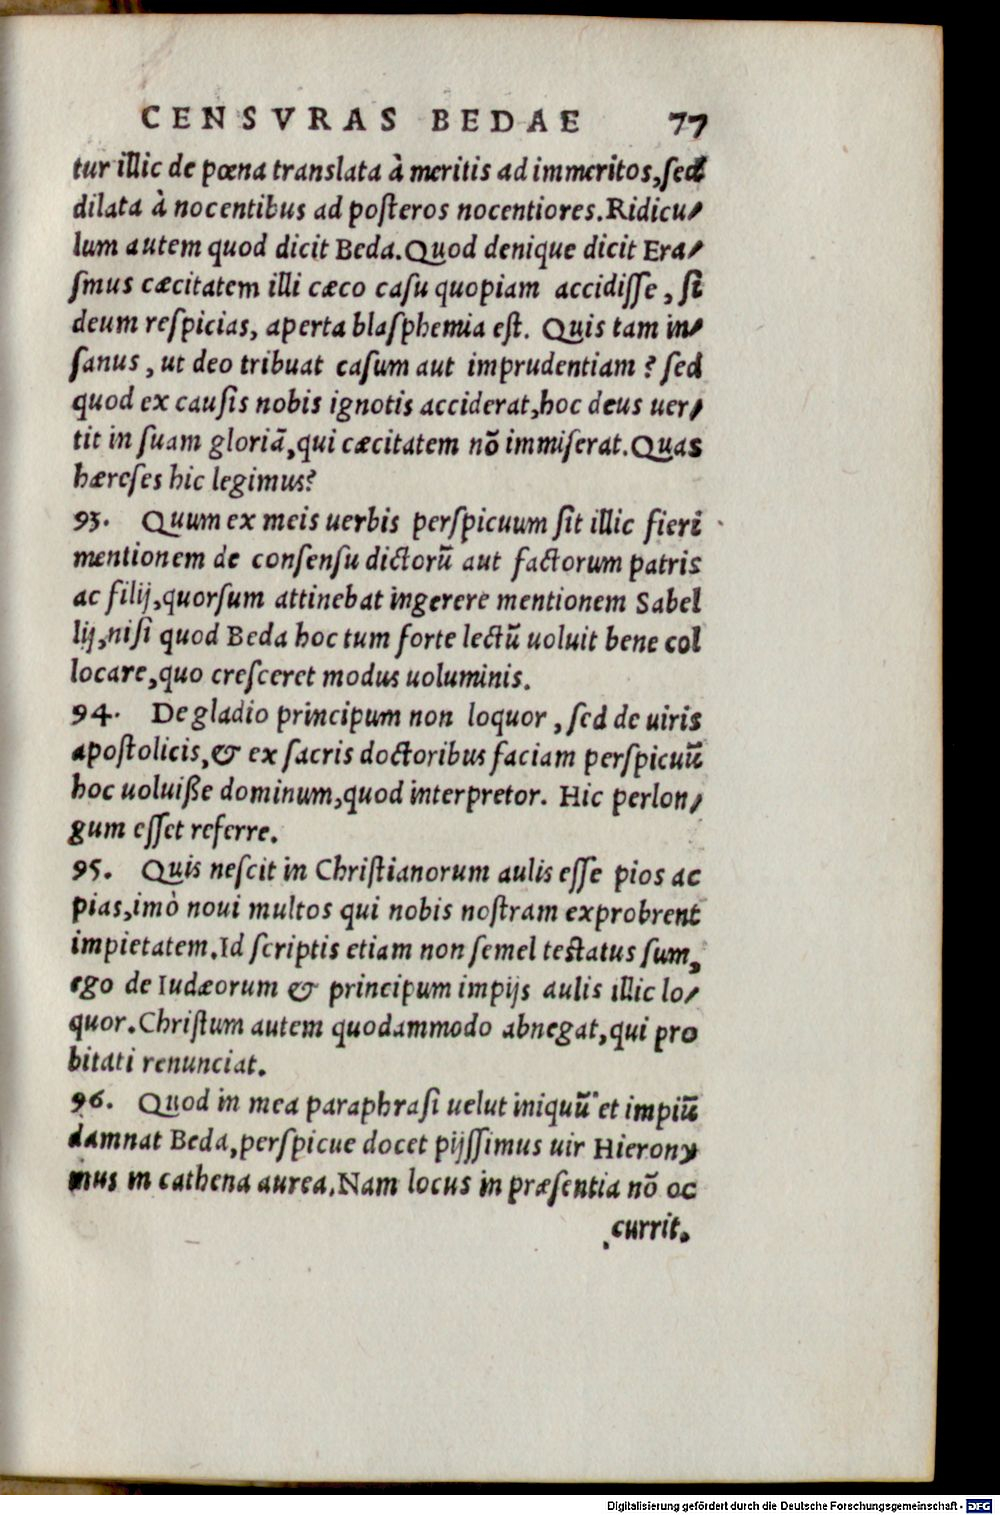 CENSVRAS BEDAE 77
tur illic de pœna translata à meritis ad immeritos, sed
dilata à nocentibus ad posteros nocentiores. Ridicu-
lum autem quod dicit Beda. Quod denique dicit Era-
smus cæcitatem illi cæco casu quopiam accidisse, si
deum respicias, aperta blasphemia est. Quis tam in-
sanus, ut deo tribuat casum aut imprudentiam? sed
quod ex causis nobis ignotis acciderat, hoc deus uer-
tit in suam gloriā, qui cæcitatem nō immiserat. Quas
hæreses hic legimus?
93. Quum ex meis uerbis perspicuum sit illic fieri
mentionem de consensu dictorū aut factorum patris
ac filij, quorsum attinebat ingerere mentionem Sabel
lij, nisi quod Beda hoc tum forte lectū uoluit bene col
locare, quo cresceret modus uoluminis.
94. De gladio principum non loquor, sed de uiris
apostolicis, & ex sacris doctoribus faciam perspicuū
hoc uoluiße dominum, quod interpretor. Hic perlon-
gum esset referre.
95. Quis nescit in Christianorum aulis esse pios ac
pias, imò noui multos qui nobis nostram exprobrent
impietatem. Id scriptis etiam non semel testatus sum,
ego de Iudæorum & principum impijs aulis illic lo-
quor. Christum autem quodammodo abnegat, qui pro
bitati renunciat.
96. Quod in mea paraphrasi uelut iniquū et impiū
damnat Beda, perspicue docet pijssimus uir Hierony
mus in cathena aurea. Nam locus in præsentia nō oc
currit.
Digitalisierung gefördert durch die Deutsche Forschungsgemeinschaft - DFG